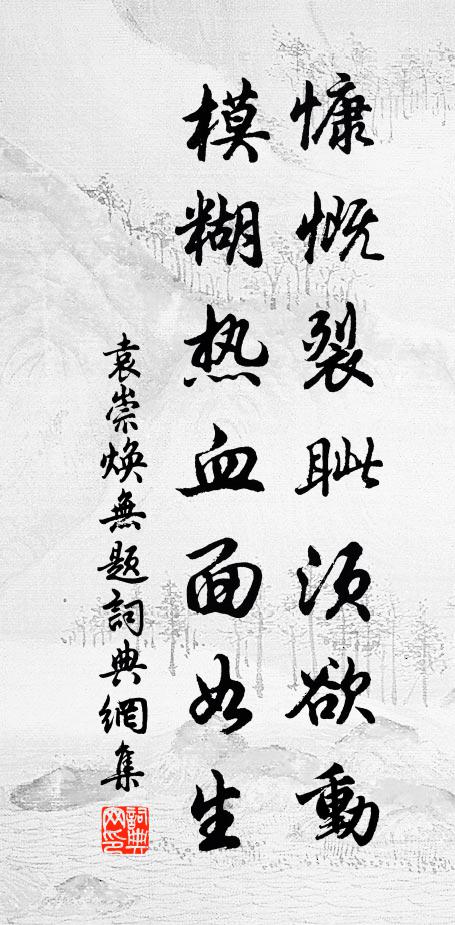 慷慨裂眦须欲動
模糊热血面如生
袁崇煥無题詞典網集
詞典网印